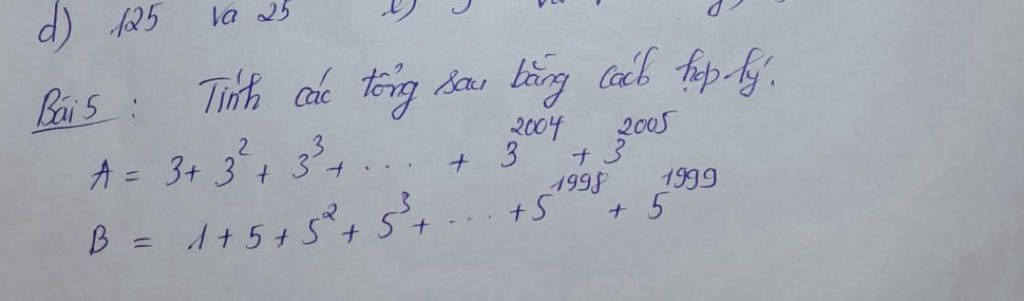 d) 125 và 25
Bài 5 : Tính các tổng sau bằng cách hợp lý.
A = 3 + 3² + 3³ + .... + 3²⁰⁰⁴ + 3²⁰⁰⁵
B = 1 + 5 + 5² + 5³ + .... + 5¹⁹⁹⁸ + 5¹⁹⁹⁹